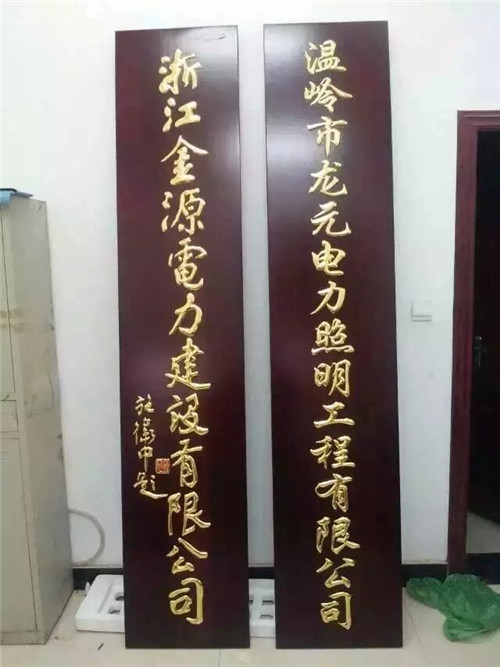 温岭市龙元电力照明工程有限公司
浙江金源電力建设有限公司
施卫中题